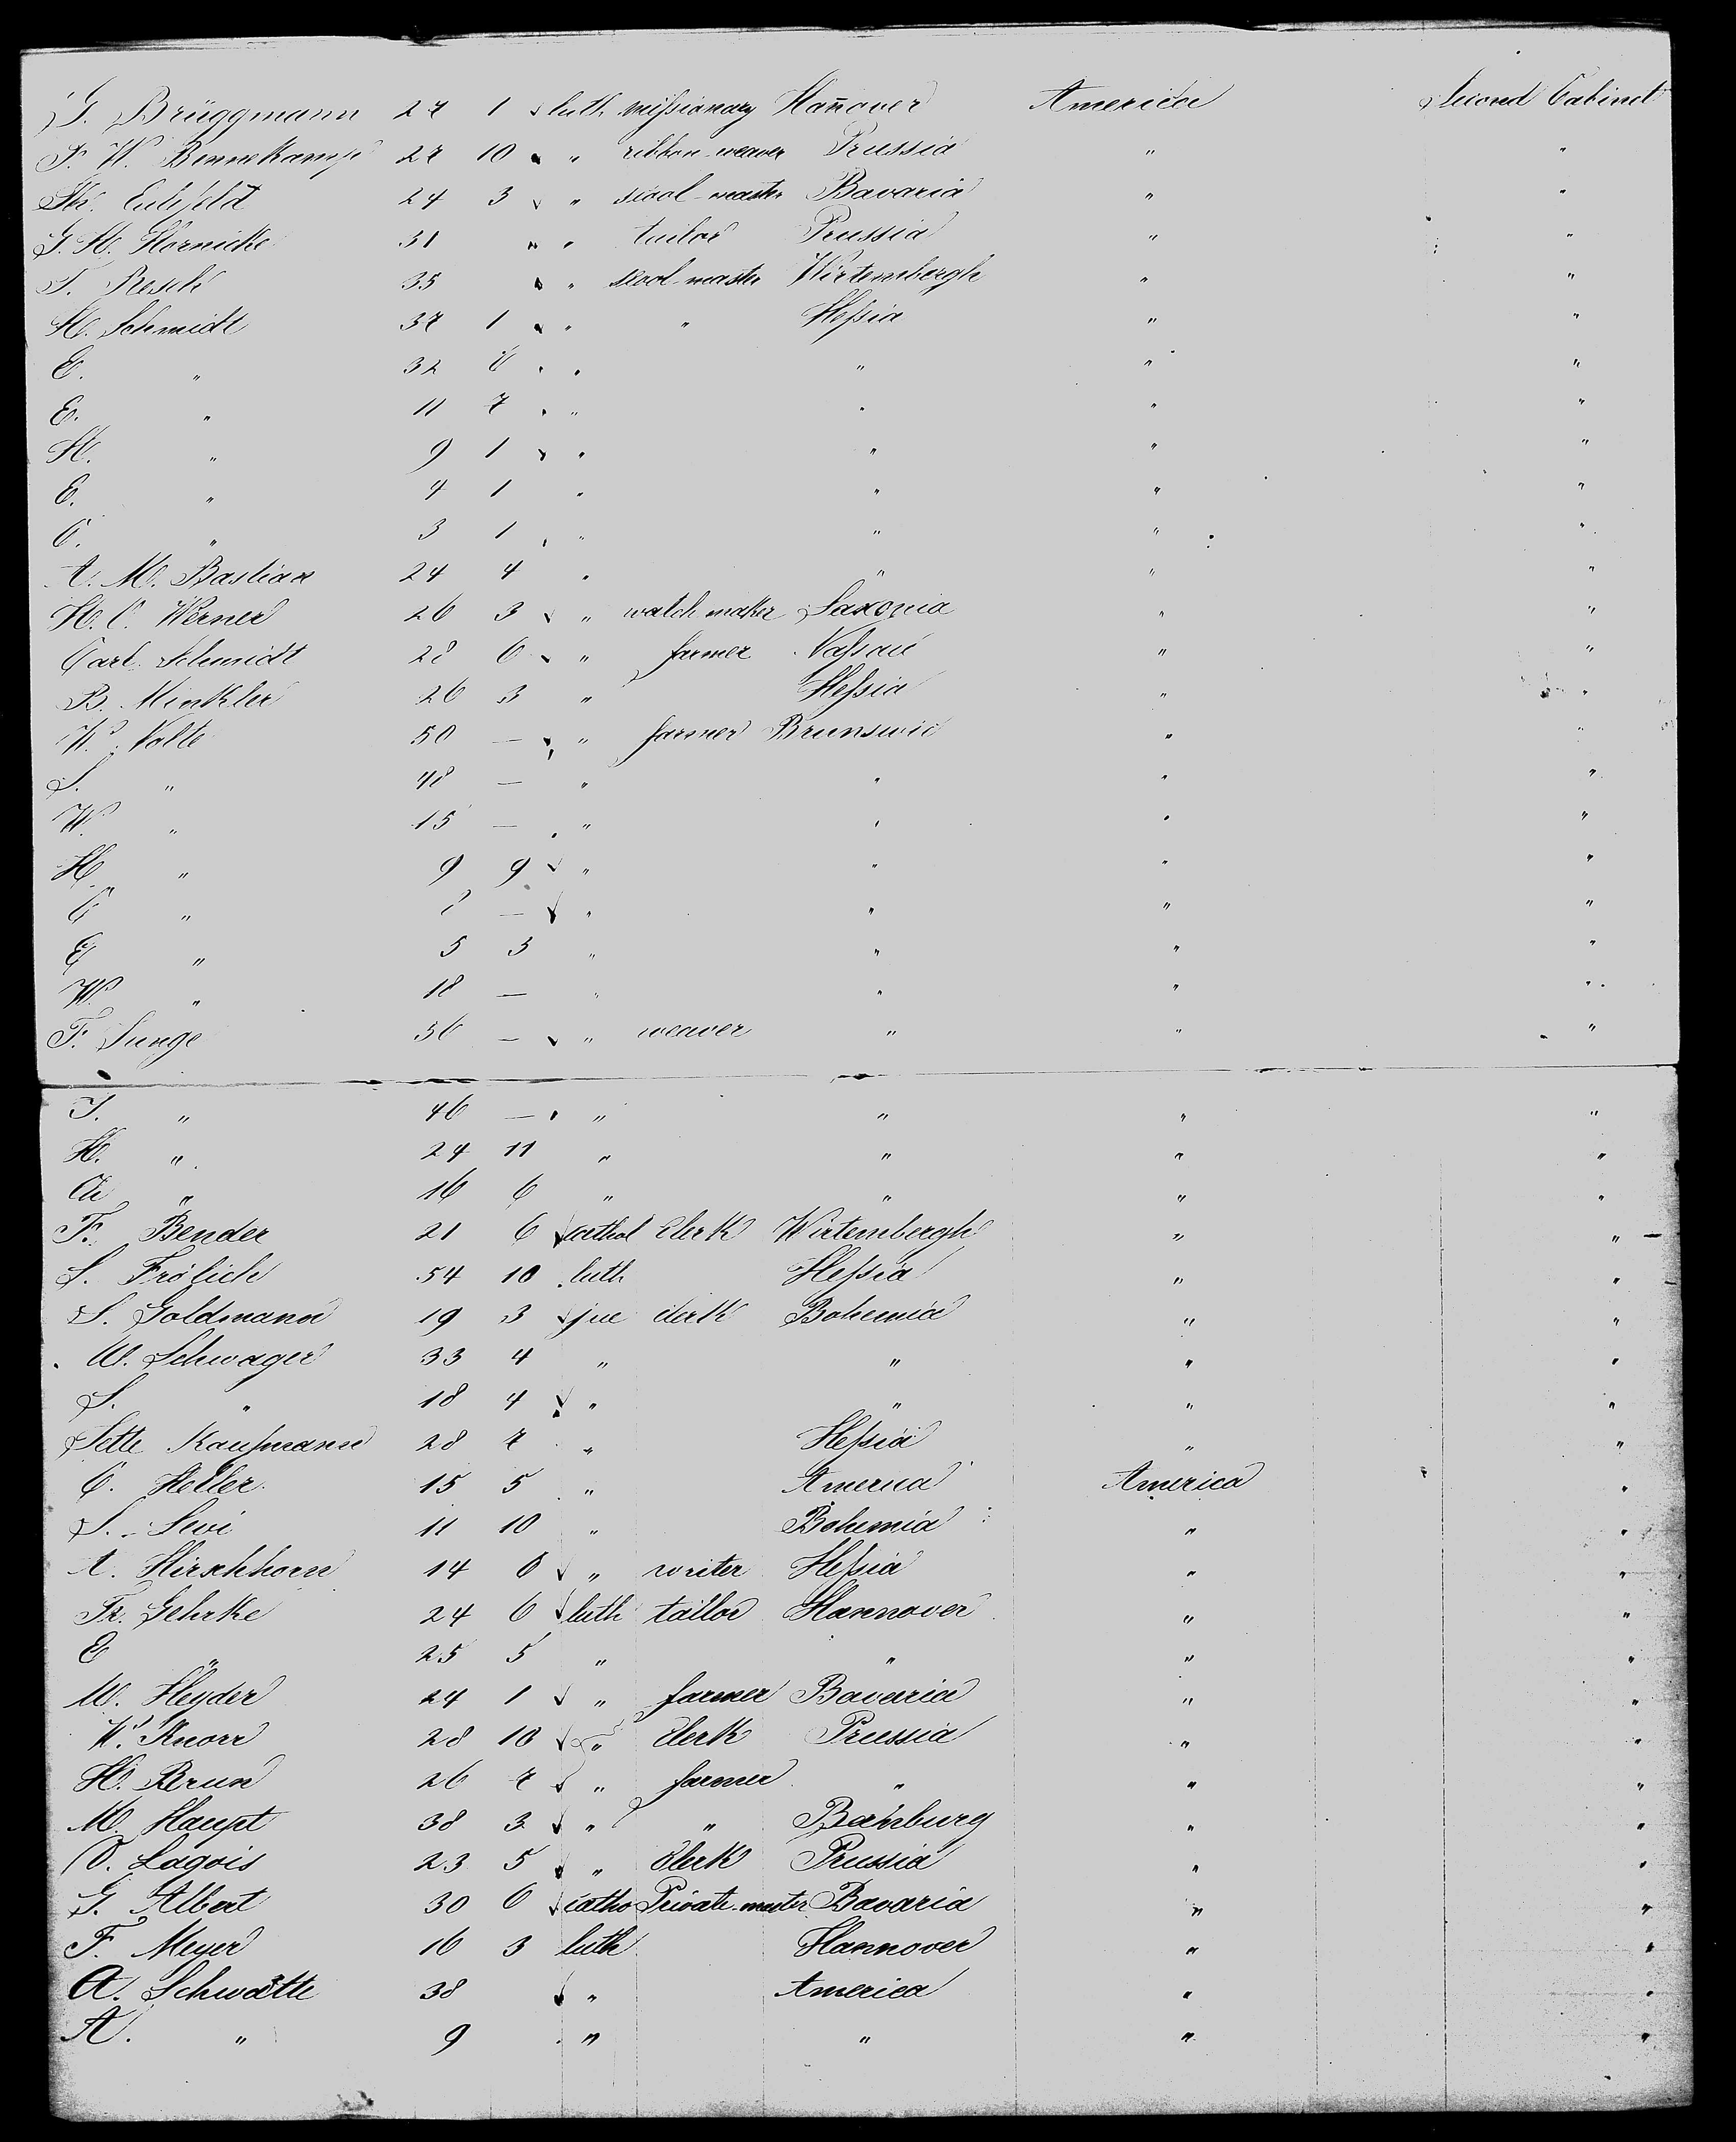 J. Brüggmann 27 1 luth. missionary Hañover America Second Cabinet
F. W. Bennekamp 27 10 " ribbon-weaver Prussia " "
24 3 " scool-master Bavaria " "
G. H. Hörnicke 31 " " tailor Prussia " "
F. Resch 35 " scool-master Wirtembergh " "
H. Schmidt 37 1 " " Hessia " "
E. " 32 6 " " " "
E. " 11 7 " " " "
H. " 9 1 " " " "
E. " 4 1 " " " "
C. " 3 1 " " " "
A. M. Bastian 24 4 " " " "
H. C. Werner 26 3 " watch maker Saxonia " "
Carl Schmidt 28 6 " farmer Nassau " "
B. Minkler 26 3 " Hessia " "
W. Nolte 50 — " farmer Brunswic " "
S. " 48 — " " " "
W. " 15 — " " " "
H. " 9 9 " " " "
C " — " " " "
E " 5 3 " " " "
W. " 18 — " " " "
F. Lunge 36 — " weaver " " "
J. " 46 — " " " "
H. " 24 11 " " " "
" 16 6 " " " "
F. Bender 21 6 cathol clerk Wirtembergh " "
S. Frölich 54 10 luth Hessia " "
S. Goldmann 19 3 jue clerk Bohemia " "
W. Schwager 33 4 " " " "
S. " 18 4 " " " "
Jette Kaufmann 28 7 " Hessia " "
C. Heller 15 5 " America America "
S. Levi 11 10 " Bohemia " "
A. Hirschhorn 14 6 " writer Hessia " "
Fr. Gehrke 24 6 luth tailor Hannover " "
E " 25 5 " " " "
W. Heyder 24 1 " farmer Bavaria " "
W. Knorr 28 10 " clerk Prussia " "
H. Brun 26 7 " farmer " " "
M. Haupt 38 3 " " " "
O. Lagois 23 5 " clerk Prussia " "
G. Albert 30 6 catho Private-master Bavaria " "
F. Meyer 16 3 luth Hannover " "
A. Schwatte 38 " America " "
A. " 9 " " " "